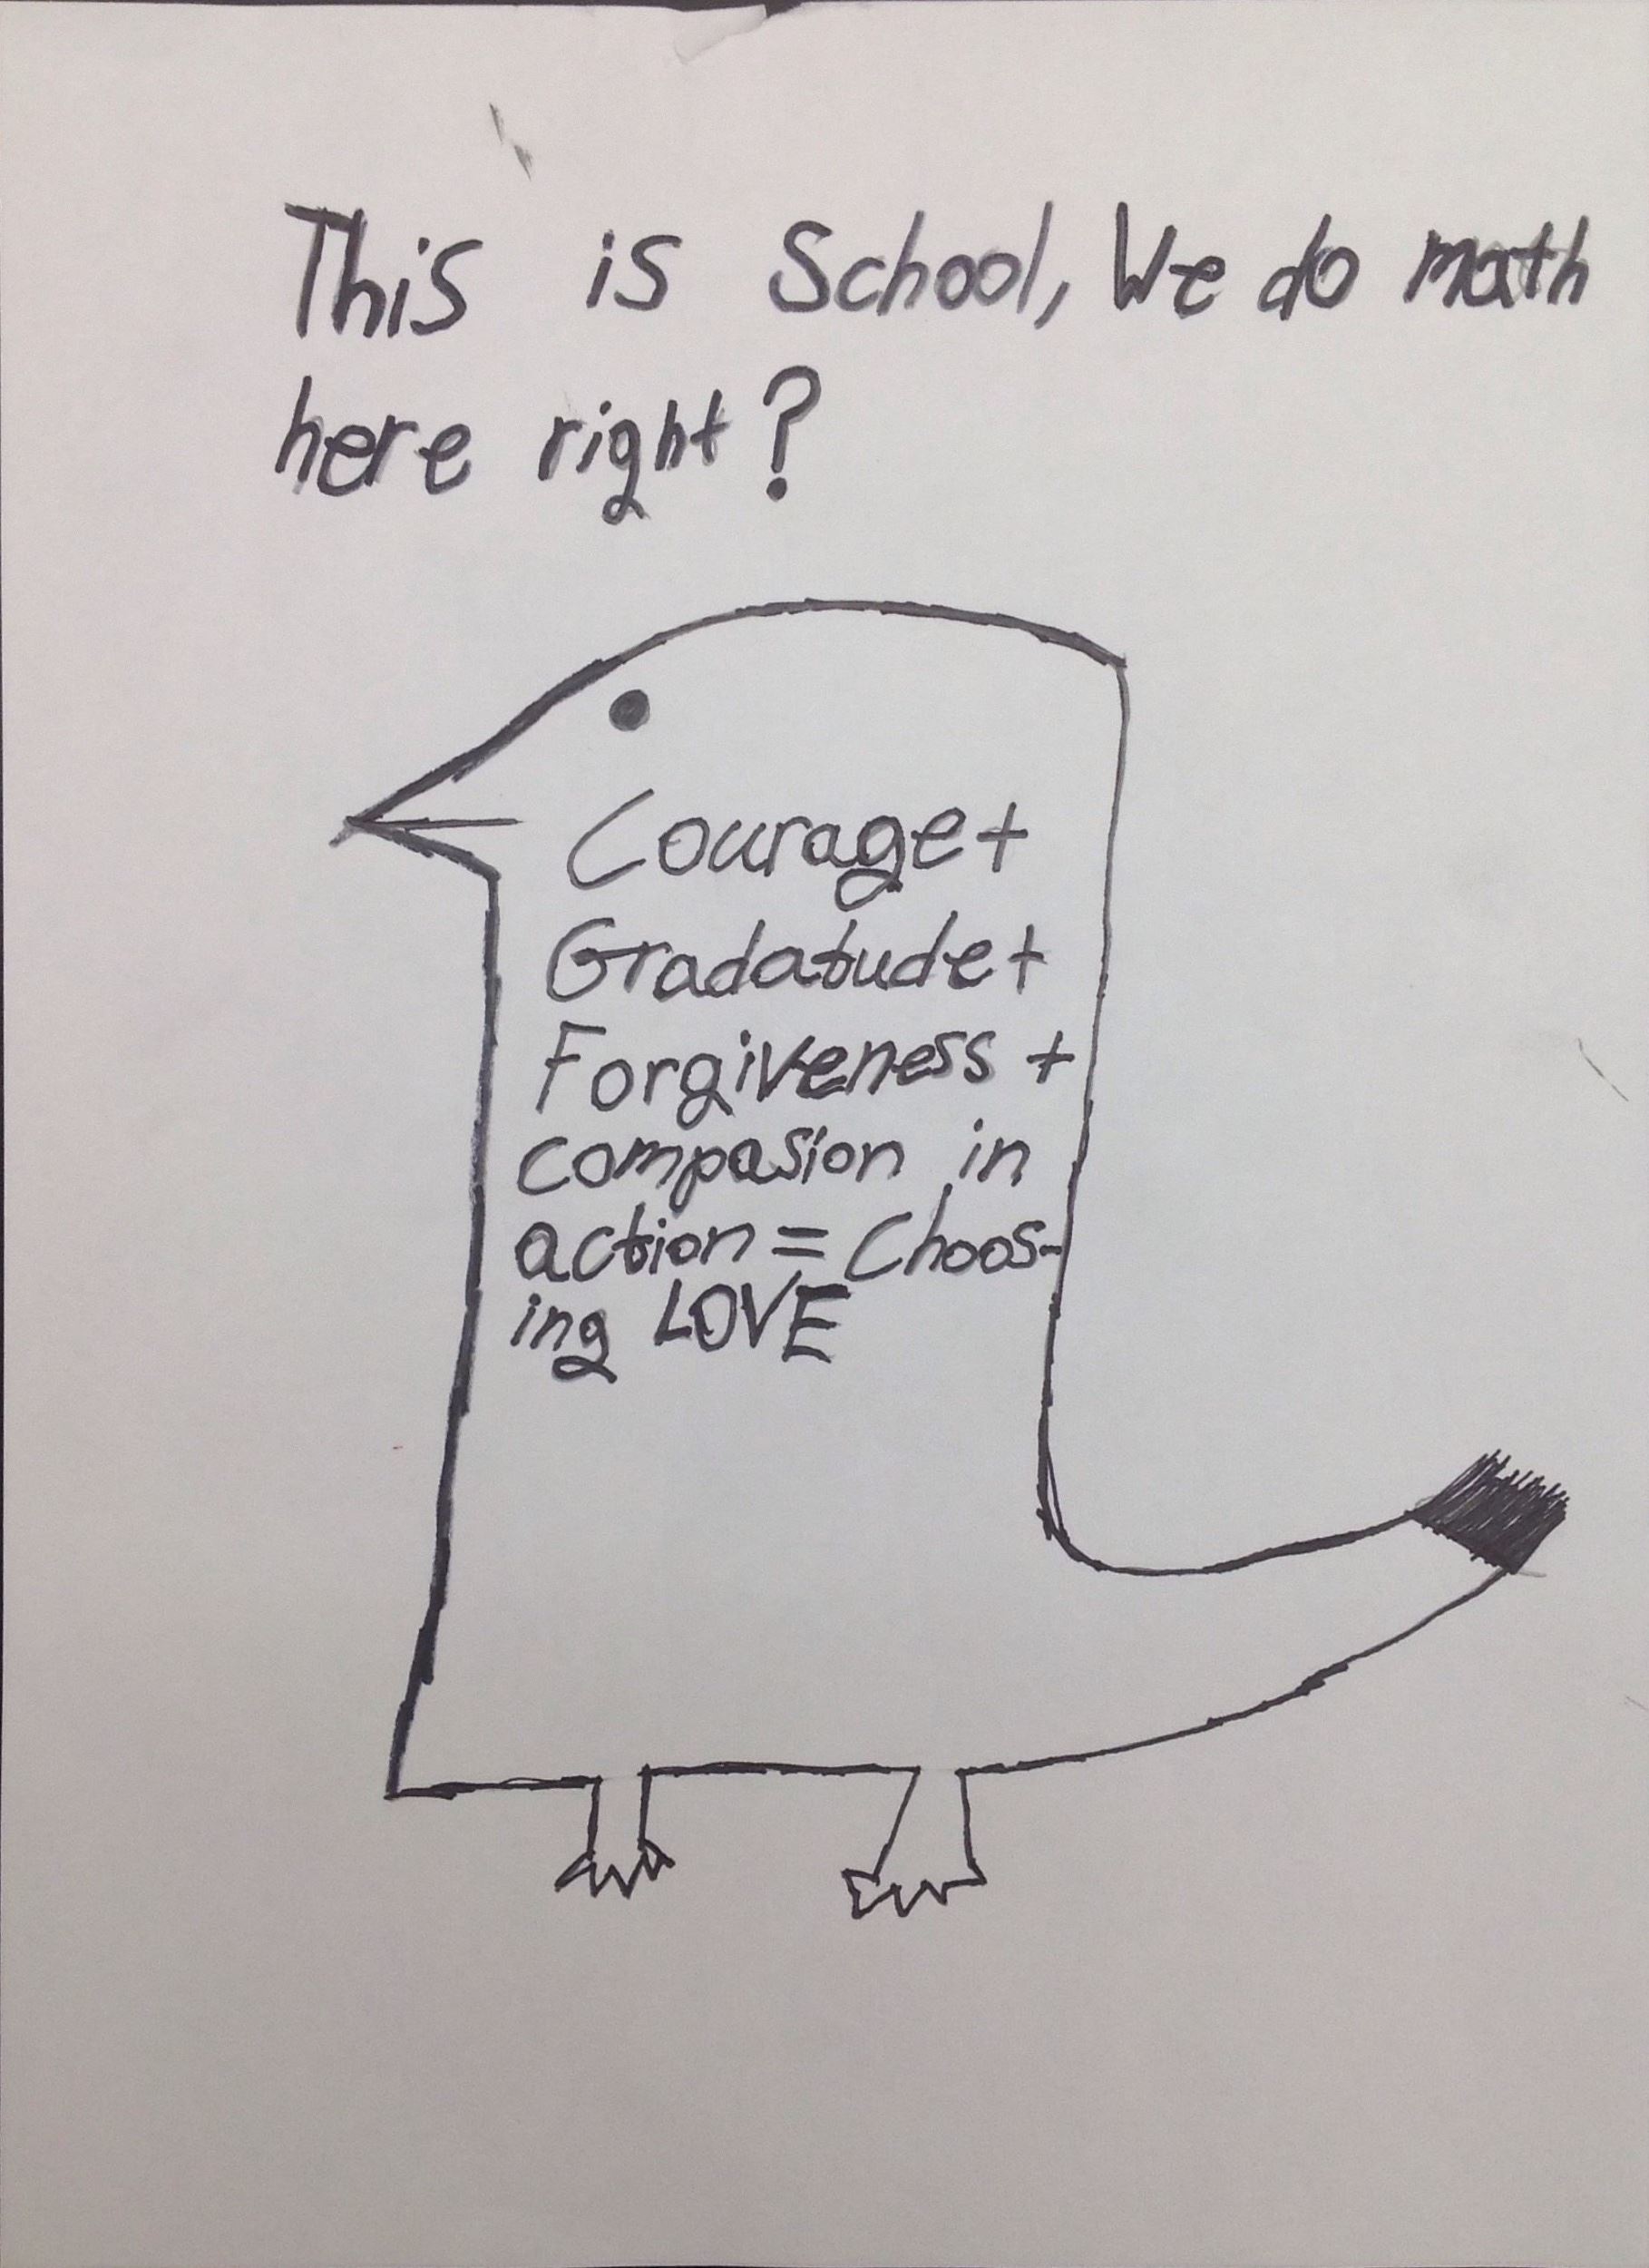 This is School, We do math
here right?
Courage+
Gradatude+
Forgiveness +
compasion in
action = Choos-
ing LOVE